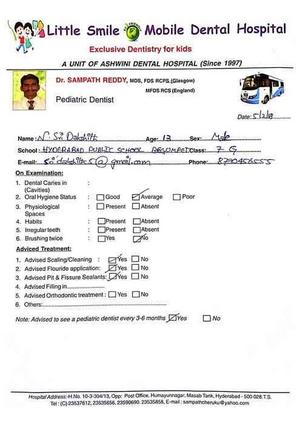 Little Smile Mobile Dental Hospital
Exclusive Dentistry for kids
A UNIT OF ASHWINI DENTAL HOSPITAL (Since 1997)
Dr. SAMPATH REDDY, MDS, FDS RCPS, (Glasgow)
MFDS RCS (England)
Pediatric Dentist
Date: 5/2/18
Name: N. Sri Dakshith Age: 13 Sex: Male
School: HYDERABAD PUBLIC SCHOOL Class: 7 G
E-mail: Phone:
On Examination:
1. Dental Caries in (Cavities) :
2. Oral Hygiene Status : Good Average Poor
3. Physiological Spaces : Present Absent
4. Habits : Present Absent
5. Irregular teeth : Present Absent
6. Brushing twice : Yes No
Adviced Treatment:
1. Advised Scaling/Cleaning : Yes No
2. Advised Flouride application: Yes No
3. Advised Pit & Fissure Sealants: Yes No
4. Advised Filling in
5. Advised Orthodontic treatment : Yes No
6. Others:
Note: Advised to see a pediatric dentist every 3-6 months Yes No
Hospital Address: H.No. 10-3-304/13, Opp: Post Office, Humayunnagar, Masab Tank, Hyderabad - 500 028 T.S.
Tel: (C) 23537612, 23535656, 23590690. 23535858, E-mail: sampathcheruku@yahoo.com